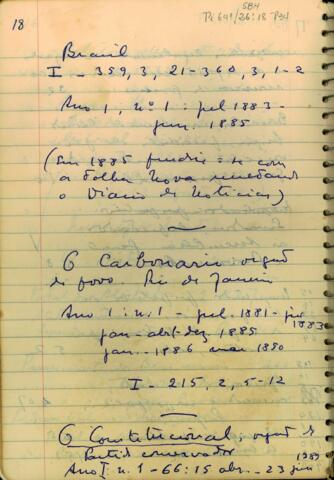 18
SBH
Pi 641/26:18 P34
Brasil
I - 359, 3, 21-360, 3, 1-2
Ano 1, nº 1: jul 1883-
jun. 1885
(Em 1885 fundiu-se com
a Folha Nova
o Diario de Noticias)
O Carbonario orgão
do povo. Rio de Janeiro
Ano 1: n. 1 - jul. 1881-
1883
jan-abr-dez 1885
jan. - 1886 mai 1890
I - 215, 2, 5-12
O Constitucional, orgão do
Partido conservador
1889
Ano I n. 1-66: 15 abr. - 23 jun